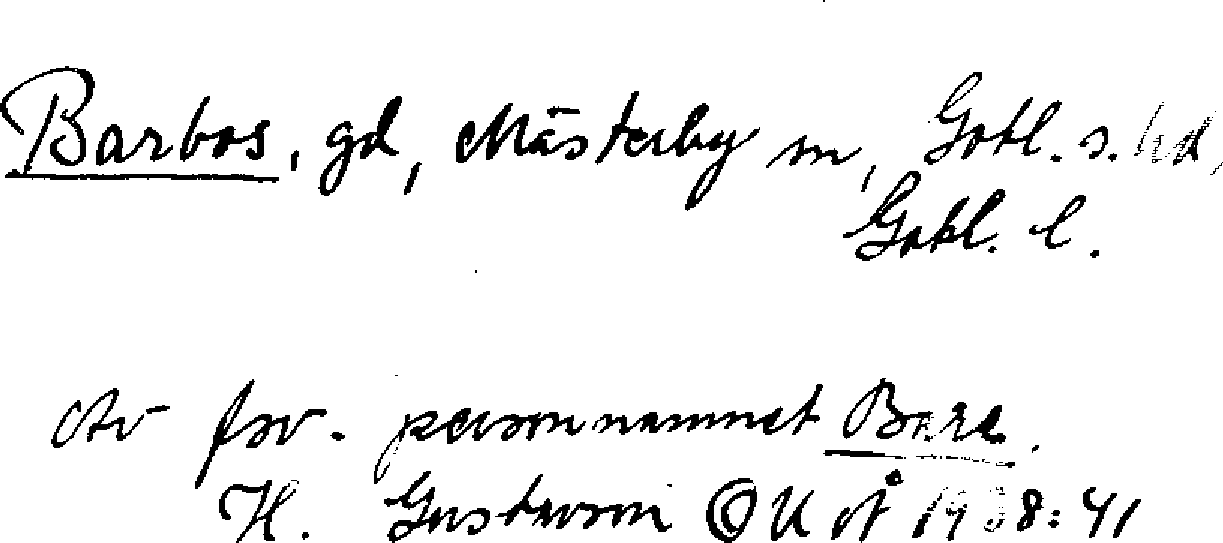 Barbos, gd, Mästerby sn, Gotl. s. hd,
Gotl. l.
Av fsv. personnamnet Bare.
H. Gustavson OUÅ 1938:41